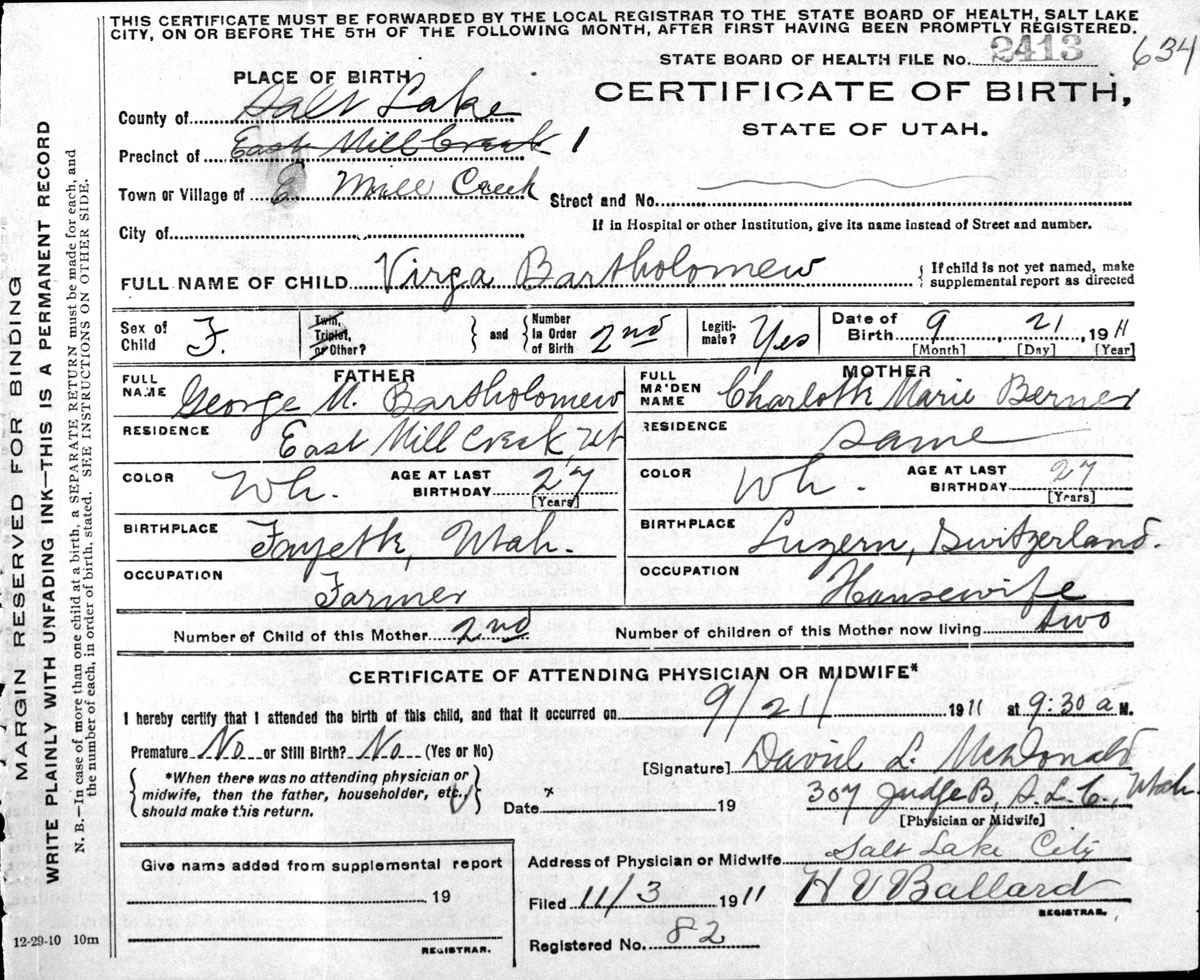 THIS CERTIFICATE MUST BE FORWARDED BY THE LOCAL REGISTRAR TO THE STATE BOARD OF HEALTH, SALT LAKE
CITY, ON OR BEFORE THE 5TH OF THE FOLLOWING MONTH, AFTER FIRST HAVING BEEN PROMPTLY REGISTERED.
STATE BOARD OF HEALTH FILE No. 2413 634
CERTIFICATE OF BIRTH,
STATE OF UTAH.
PLACE OF BIRTH
County of Salt Lake
Precinct of East Mill Creek 1
Town or Village of E Mill Creek
Street and No.
City of
If in Hospital or other Institution, give its name instead of Street and number.
FULL NAME OF CHILD Virga Bartholomew
{ If child is not yet named, make
supplemental report as directed
Sex of
Child F.
Twin,
Triplet,
or Other?
} and {
Number
in Order
of Birth 2nd
Legiti-
mate? Yes
Date of
Birth 9 21 1911
[Month] [Day] [Year]
FATHER
FULL
NAME George M. Bartholomew
RESIDENCE East Mill Creek, Ut
COLOR Wh.
AGE AT LAST
BIRTHDAY 27
[Years]
BIRTHPLACE Fayette, Utah.
OCCUPATION Farmer
MOTHER
FULL
MAIDEN
NAME Charloth Marie Berner
RESIDENCE Same
COLOR Wh.
AGE AT LAST
BIRTHDAY 27
[Years]
BIRTHPLACE Luzern, Switzerland.
OCCUPATION Housewife
Number of Child of this Mother 2nd
Number of children of this Mother now living two
CERTIFICATE OF ATTENDING PHYSICIAN OR MIDWIFE*
I hereby certify that I attended the birth of this child, and that it occurred on 9/21/ 1911 at 9:30 a M.
Premature No or Still Birth? No (Yes or No)
{ *When there was no attending physician or
midwife, then the father, householder, etc.,
should make this return. }
[Signature] David L. McDonald
Date 19
307 Judge B, S.L.C., Utah.
[Physician or Midwife]
Give name added from supplemental report
19
REGISTRAR.
Address of Physician or Midwife Salt Lake City
Filed 11/3 1911 H V Ballard
REGISTRAR.
Registered No. 82
12-29-10 10m
MARGIN RESERVED FOR BINDING
WRITE PLAINLY WITH UNFADING INK—THIS IS A PERMANENT RECORD
N. B.—In case of more than one child at a birth, a SEPARATE RETURN must be made for each, and
the number of each, in order of birth, stated. SEE INSTRUCTIONS ON OTHER SIDE.